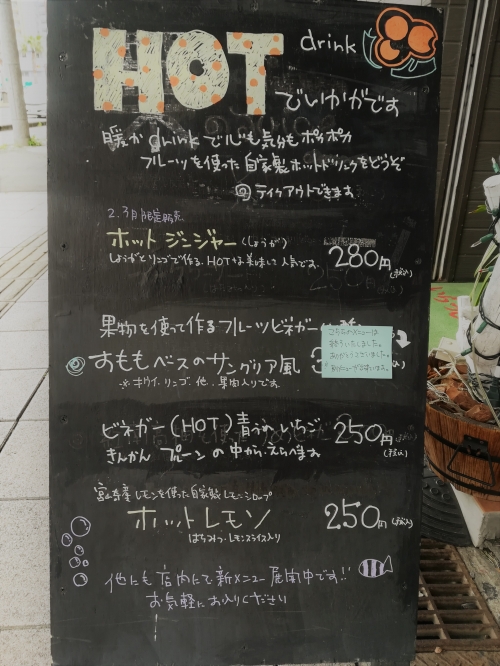 HOT drink
でいかがです
暖か drink で心も気分もポカポカ
フルーツを使った自家製ホットドリンクをどうぞ
テイクアウトできます
2.3月限定販売
ホット ジンジャー (しょうが) 280円 (税込)
しょうがとリンゴで作る、HOTな美味しで人気です。
果物を使って作るフルーツビネガー
すももベースのサングリア風 3
※キウイ、リンゴ、他、果肉入りです。
こちらのメニューは
終了いたしました。
ありがとうございました。
ビネガー(HOT) 青うめ、いちご 250円 (税込)
きんかん プルーン の中からえらべます
宮崎産レモンを使った自家製レモンシロップ
ホットレモン 250円 (税込)
はちみつ・レモンスライス入り
他にも店内にて新メニュー展開中です!!
お気軽にお入りください